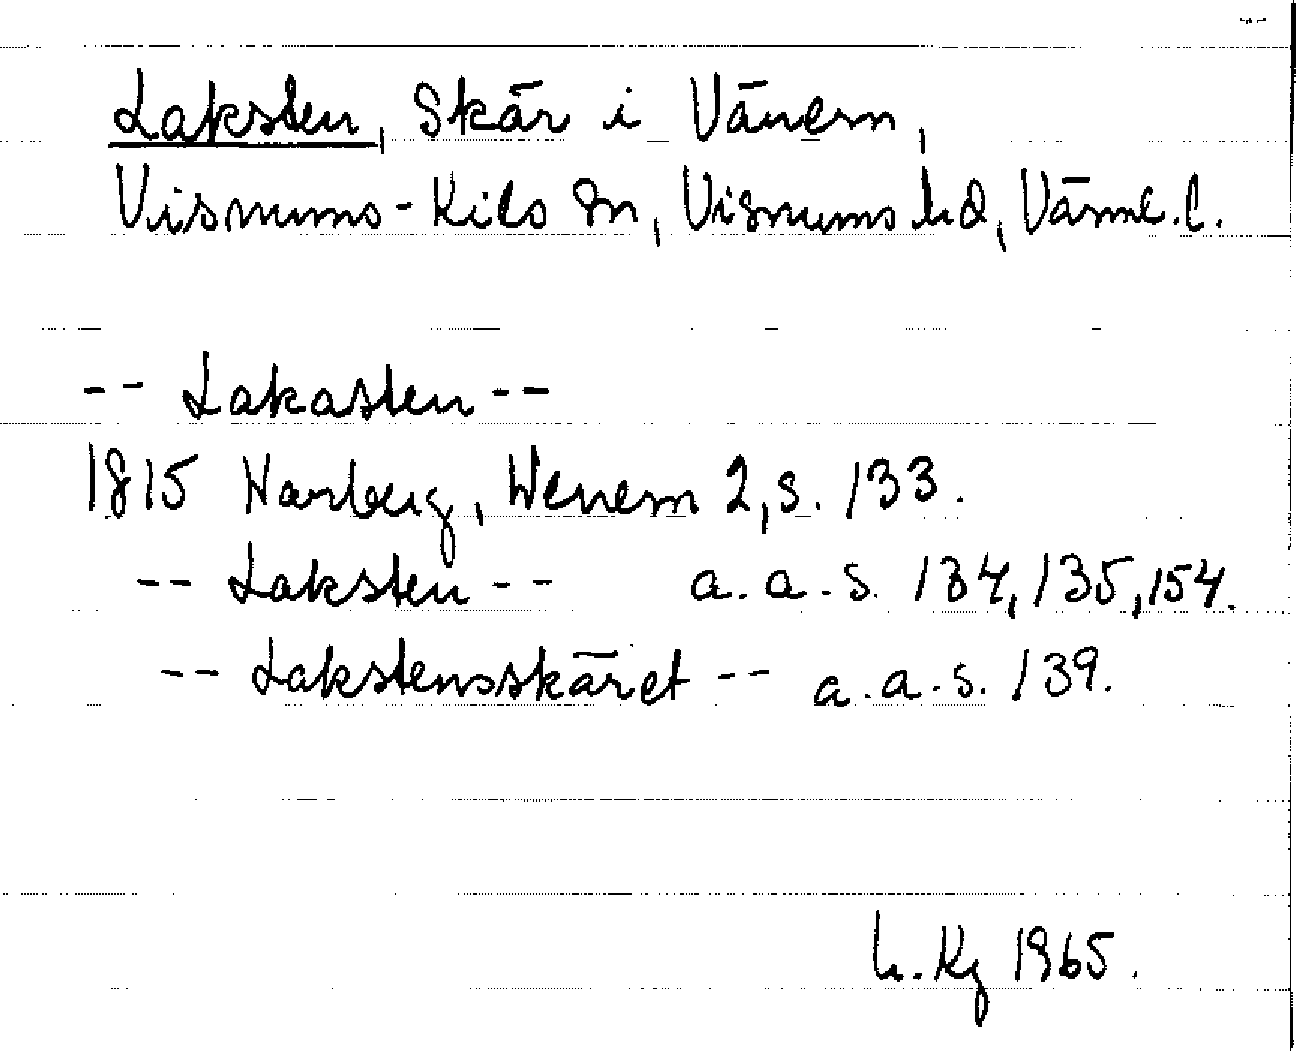 Laksten, Skär i Vänern,
Visnums-Kils sn, Visnums hd, Värml. l.
-- Lakasten --
1815 Warberg, Wenern 2, s. 133.
-- Laksten -- a. a. s. 134, 135, 154.
-- Lakstensskäret -- a. a. s. 139.
h. Kg 1965.